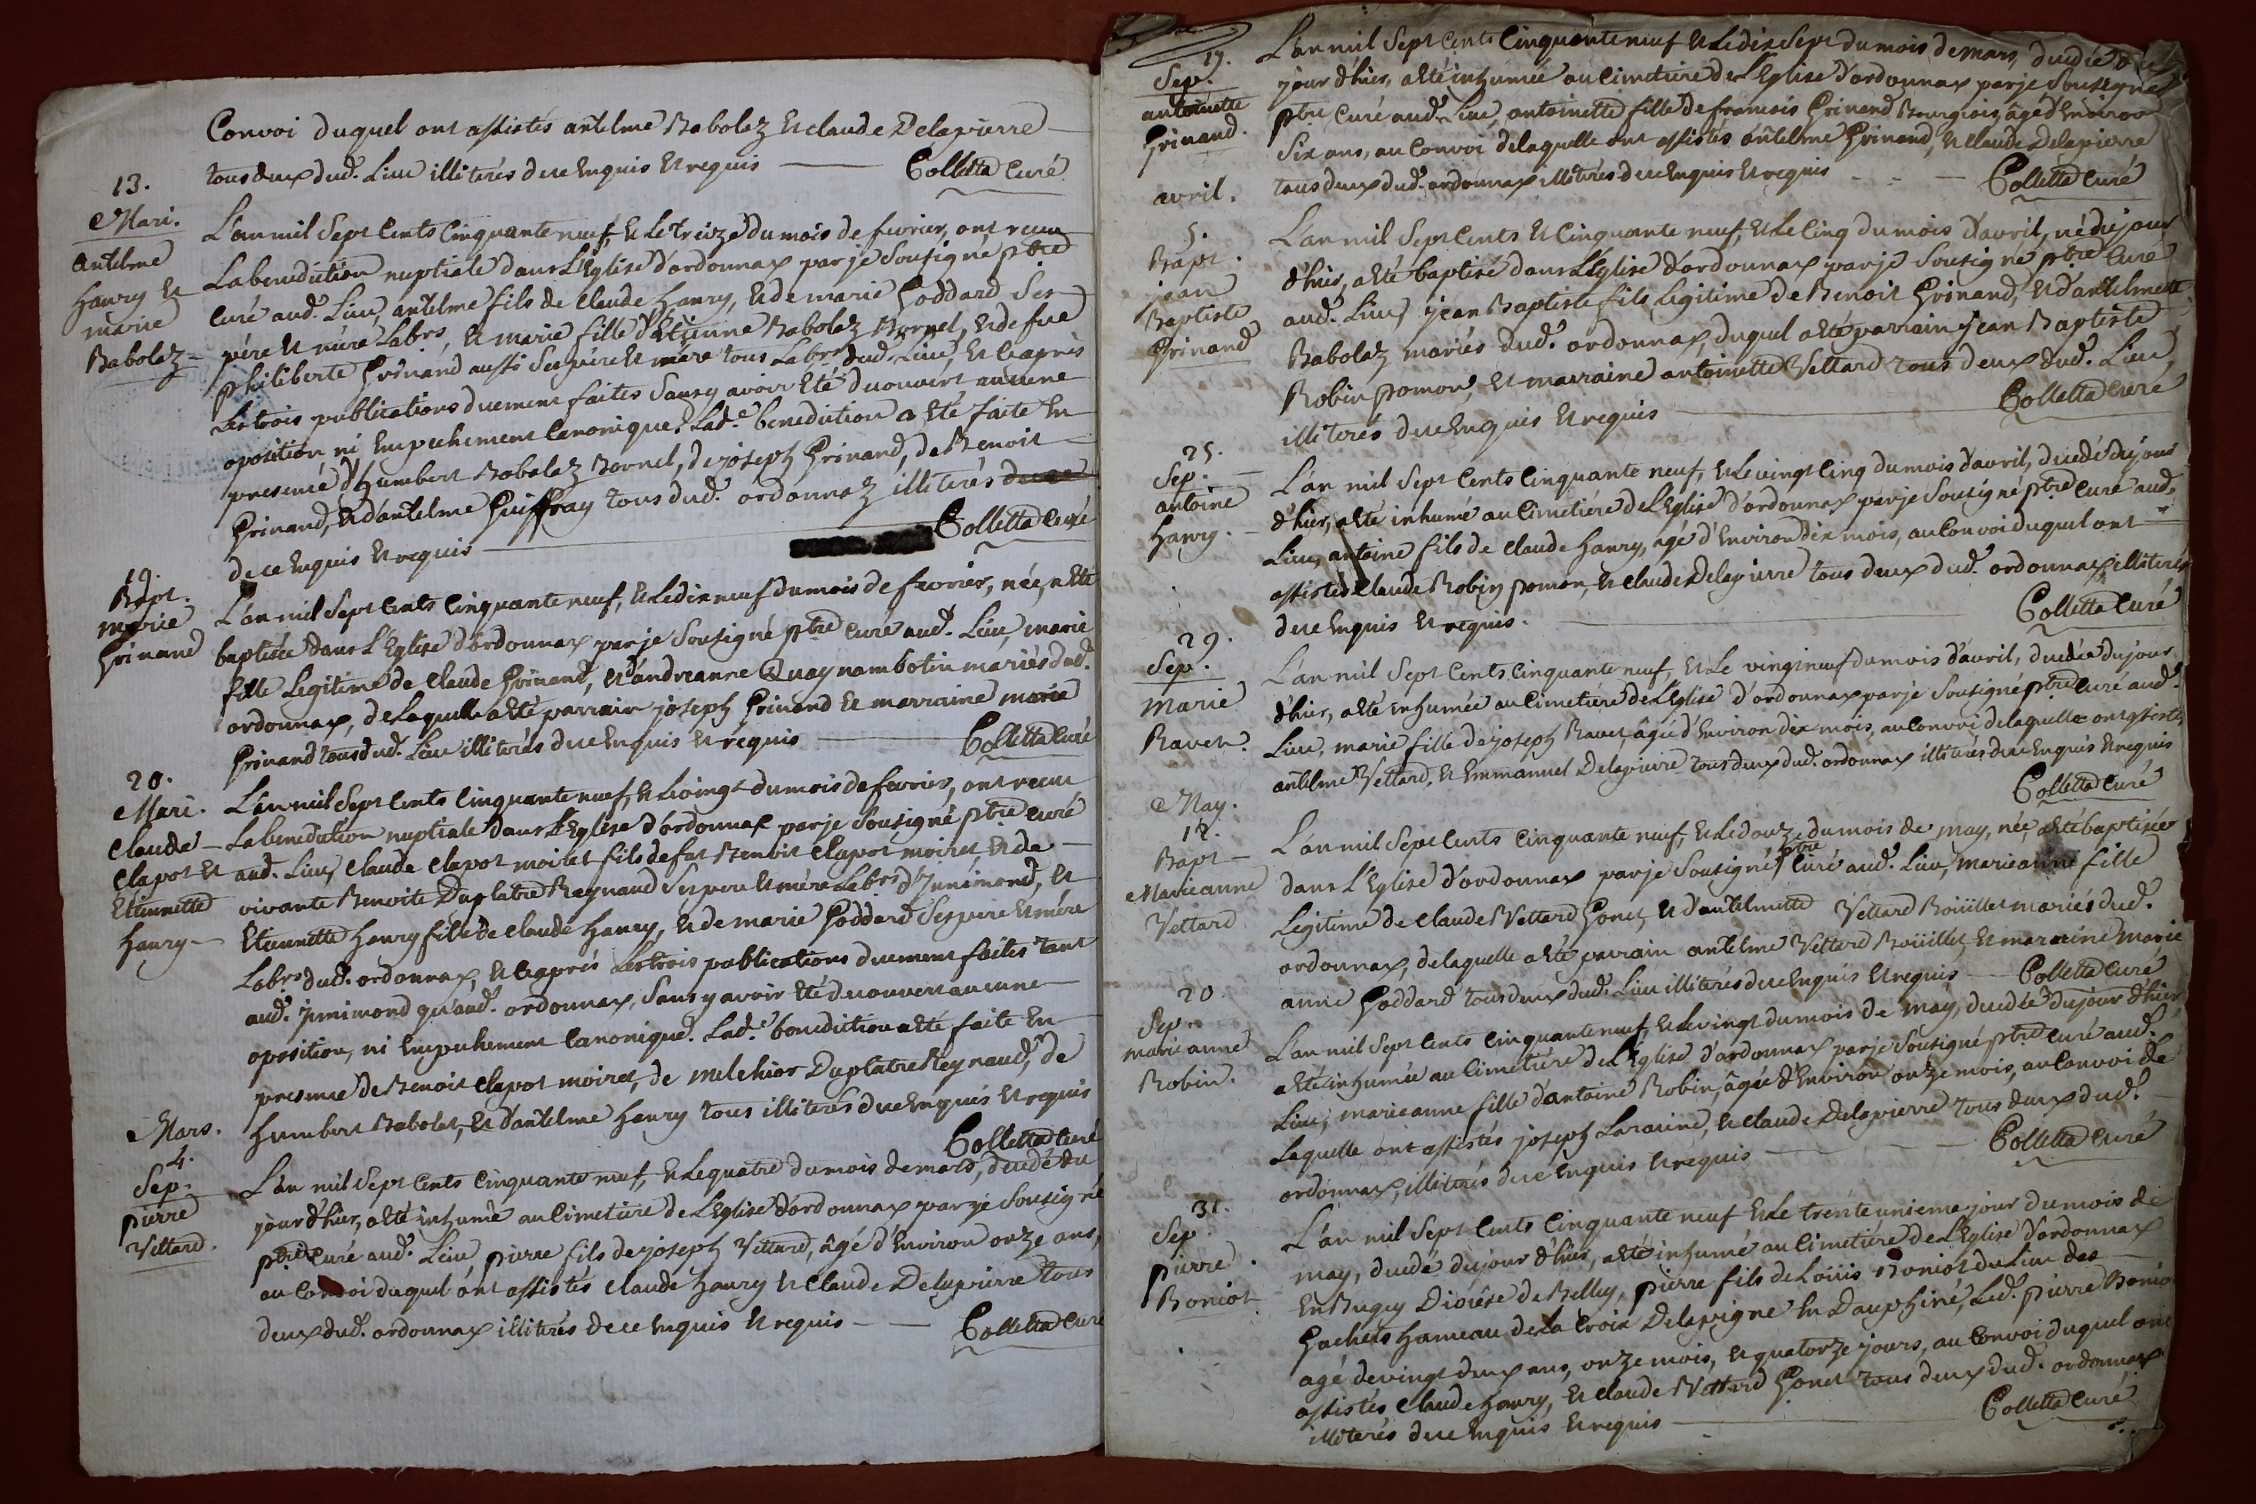 Convoi duquel ont assistés antelme Babolaz et claude Delapierre
tous deux dud. Lieu illiterés de ce enquis et requis — Colletta curé
13.
Mari.
antelme
hanry et
marie
Babolaz
L'an mil sept cents cinquante neuf, et le treize du mois de fevrier, ont recu
La benediction nuptiale dans L'Eglise d'ordonnax par je sousigné ptre
curé aud. Lieu, antelme fils de claude hanry, et de marie Goddard ses
père et mère Labrs, et marie fille d'Etienne Babolaz Bornel, et de fue
philiberte Grinand aussi ses père et mère tous Labrs dud. Lieu, et ce après
Les trois publications duement faites sans y avoir été decouvert aucune
oposition ni empechement canonique. Lad.e benediction a été faite en
presence d'humbert Babolaz Bornel, de joseph Grinand, de Benoit
Grinand, et d'antelme Guiffray tous dud. ordonnaz illiterés
de ce enquis et requis — Colletta curé
19.
Bapt.
marie
Grinand
L'an mil sept cents cinquante neuf, et le dix neuf du mois de fevrier, née, a été
baptisée dans L'Eglise d'ordonnax par je sousigné ptre curé aud. Lieu, marie
fille Legitime de claude Grinand, et d'andreanne Quaynambotin mariés dud.
ordonnax, de Laquelle a été parrain joseph Grinand et marraine marie
Grinand tous dud. Lieu illiterés de ce enquis et requis — Colletta curé
20.
Mari.
claude
clapot et
Etiennette
hanry
L'an mil sept cents cinquante neuf, et le vingt du mois de fevrier, ont recu
La benediction nuptiale dans L'Eglise d'ordonnax par je sousigné ptre curé
aud. Lieu, claude clapot moiret fils de fut Benoit clapot moiret, et de
vivante Benoite Duplatre Raynaud ses pere et mère Labrs d'Innimond, et
Etiennette hanry fille de claude hanry, et de marie Goddard ses pere et mère
Labrs dud. ordonnax, et ce après Les trois publications duement faites tant
aud. ynnimond qu'aud. ordonnax, sans y avoir été decouvert aucune
oposition, ni empechement canonique. Lad.e benediction a été faite en
presence de Benoit clapot moiret, de melchior Duplatre Reynaud, de
humbert Babolat, et d'antelme hanry tous illiterés de ce enquis et requis
Colletta curé
Mars.
4.
Sep.
pierre
Vettard.
L'an mil sept cents cinquante neuf, et le quatre du mois de mars, decedé du
jour d'hier, a été inhumé au cimetière de L'Eglise d'ordonnax par je sousigné
ptre curé aud. Lieu, pierre fils de joseph Vettard, âgé d'environ onze ans,
au convoi duquel ont assistés claude hanry et claude Delapierre tous
deux dud. ordonnax illiterés de ce enquis et requis — Colletta curé
17.
Sep.
antoinette
Grinand.
L'an mil sept cents cinquante neuf et le dix sept du mois de mars, decedée du
jour d'hier, a été inhumée au cimetière de L'Eglise d'ordonnax par je sousigné
ptre curé aud. Lieu, antoinette fille de francois Grinand Bourgeois, âgé d'environ
six ans, au convoi de laquelle ont assistés antelme Grinand, et claude Delapierre
tous deux dud. ordonnax illiterés de ce enquis et requis — Colletta curé
avril.
5.
Bapt.
jean
Baptiste
Grinand
L'an mil sept cents et cinquante neuf, et le cinq du mois d'avril, né du jour
d'hier, a été baptisé dans L'Eglise d'ordonnax par je sousigné ptre curé
aud. Lieu, jean Baptiste fils Legitime de Benoit Grinand, et d'antelmette
Babolaz mariés dud. ordonnax, duquel a été parrain jean Baptiste
Robin pomon, et marraine antoinette Vettard tous deux dud. Lieu
illiterés de ce enquis et requis — Colletta curé
25.
Sep.
antoine
hanry.
L'an mil sept cents cinquante neuf, et le vingt cinq du mois d'avril, decedé du jour
d'hier, a été inhumé au cimetière de L'Eglise d'ordonnax par je sousigné ptre curé aud.
Lieu, antoine fils de claude hanry, âgé d'environ dix mois, au convoi duquel ont
assistés claude Robin pomon, et claude Delapierre tous deux dud. ordonnax illiterés
de ce enquis et requis. — Colletta curé
29.
Sep.
marie
Ravet.
L'an mil sept cents cinquante neuf, et Le vingt neuf du mois d'avril, decedée du jour
d'hier, a été inhumée au cimetière de L'Eglise d'ordonnax par je sousigné ptre curé aud.
Lieu, marie fille de joseph Ravet, âgée d'environ dix mois, au convoi de laquelle ont assistés
antelme Vettard, et Emmanuel Delapierre tous deux dud. ordonnax illiterés de ce enquis et requis
Colletta curé
May.
12.
Bapt
Marieanne
Vettard
L'an mil sept cents cinquante neuf, et le douze du mois de may, née, a été baptisée
dans L'Eglise d'ordonnax par je sousigné ptre curé aud. Lieu, marieanne fille
Legitime de claude Vettard Gonet, et d'antelmette Vettard Roüillet mariés dud.
ordonnax, de laquelle a été parrain antelme Vettard Roüillet, et marraine marie
anne Goddard tous deux dud. Lieu illiterés de ce enquis et requis — Colletta curé
20
Sep.
marieanne
Robin.
L'an mil sept cents cinquante neuf, et le vingt du mois de may, decedée du jour d'hier
a été inhumée au cimetière de L'Eglise d'ordonnax par je sousigné ptre curé aud.
Lieu, marieanne fille d'antoine Robin, âgée d'environ onze mois, au convoi de
Laquelle ont assistés joseph Laracine, et claude Delapierre tous deux dud.
ordonnax, illiterés de ce enquis et requis — Colletta curé
31.
Sep.
pierre
Boniot
L'an mil sept cents cinquante neuf et Le trente unieme jour du mois de
may, decedé du jour d'hier, a été inhumé au cimetière de L'Eglise d'ordonnax
en Bugey Diocèse de Belley, pierre fils de Loüis Boniot du Lieu des
Gachets hameau de La croix Delapigne en Dauphiné, Led. pierre Boniot
agé de vingt deux ans, onze mois, et quatorze jours, au convoi duquel ont
assistés claude hanry, et claude Vettard Gonet tous deux dud. ordonnax
illiterés de ce enquis et requis — Colletta curé